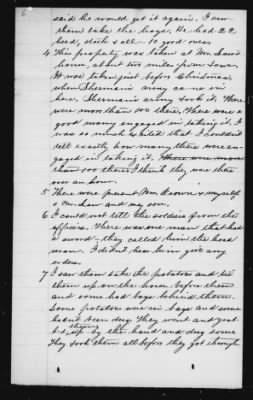 6
said he would get it again. I saw
them take the hogs. He had 22
head, stock all & good ones.
4 This property was taken at Mr. Law's
house, about two miles from town.
It was taken just before Christmas,
when Sherman's army came in
here, Sherman's army took it. There
were more than were there. There were a
good many engaged in taking it. I
was so much excited that I couldn't
tell exactly how many there were en-
gaged in taking it. There were more
than 100 there I think they were there
over an hour.
5 There were present Mr. & myself
& Mr. Law and my son.
6 I could not tell the soldiers from the
officers. There was one man that had
a sword they called him the head
man. I didn't hear him give any
orders.
7 I saw them take the potatoes and tie
them up on the horse before them
and some had bags behind them.
Some potatoes were in bags and some
hadn't been dug. They went and
up by the hand and dug some
They took them all before they got through